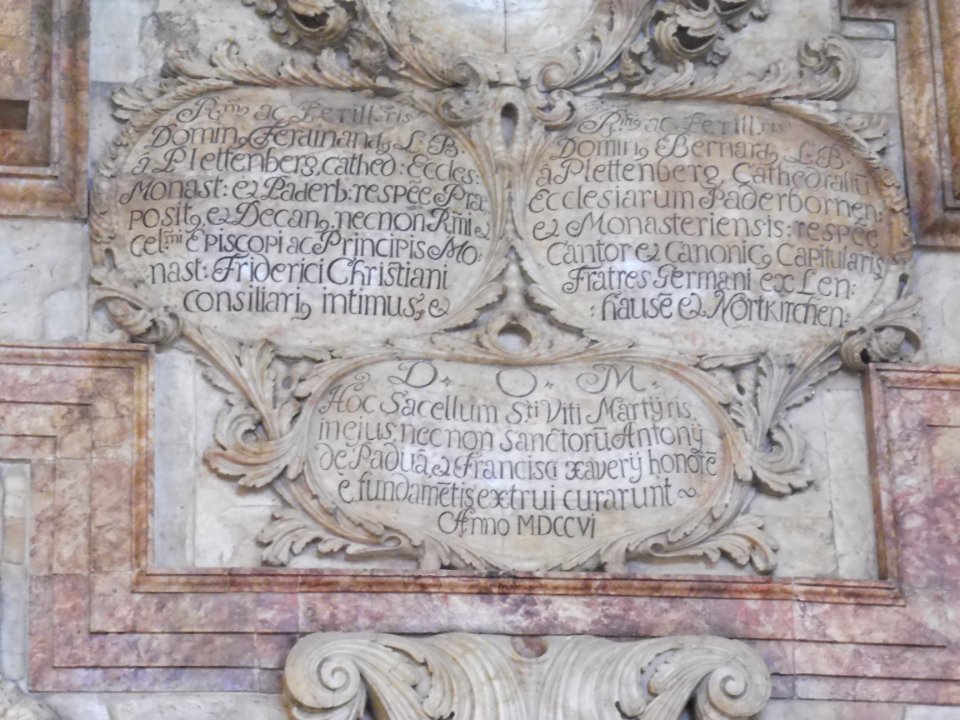 R:mus ac Perill:ris
Domin9 Ferdinand9 L:B:
a Plettenberg, Cathed: Eccles:
Monast: & Paderb: respée Præ,
posit9 & Decan9 necnon R:mi &
cel:mi Episcopi ac Principis Mo,
nast: Friderici Christiani
consiliari9 intimus &
R:mus ac Perill:ris
Domin9 Bernard9 L:B:
a Plettenberg Cathedraliū
Ecclesiarum Paderbornen:
& Monasteriensis: respée
Cantor & Canonic9 Capitularis
Fratres Germani ex Len:
hausē & Nortkirchen:
D. O. M.
Hoc Sacellum S:ti Viti Martÿris
in ejus nec non Sanctorū Antonÿ
de Padua, & Francisci xaverÿ honorē
e fundamētis extrui curarunt
Anno MDCCVI